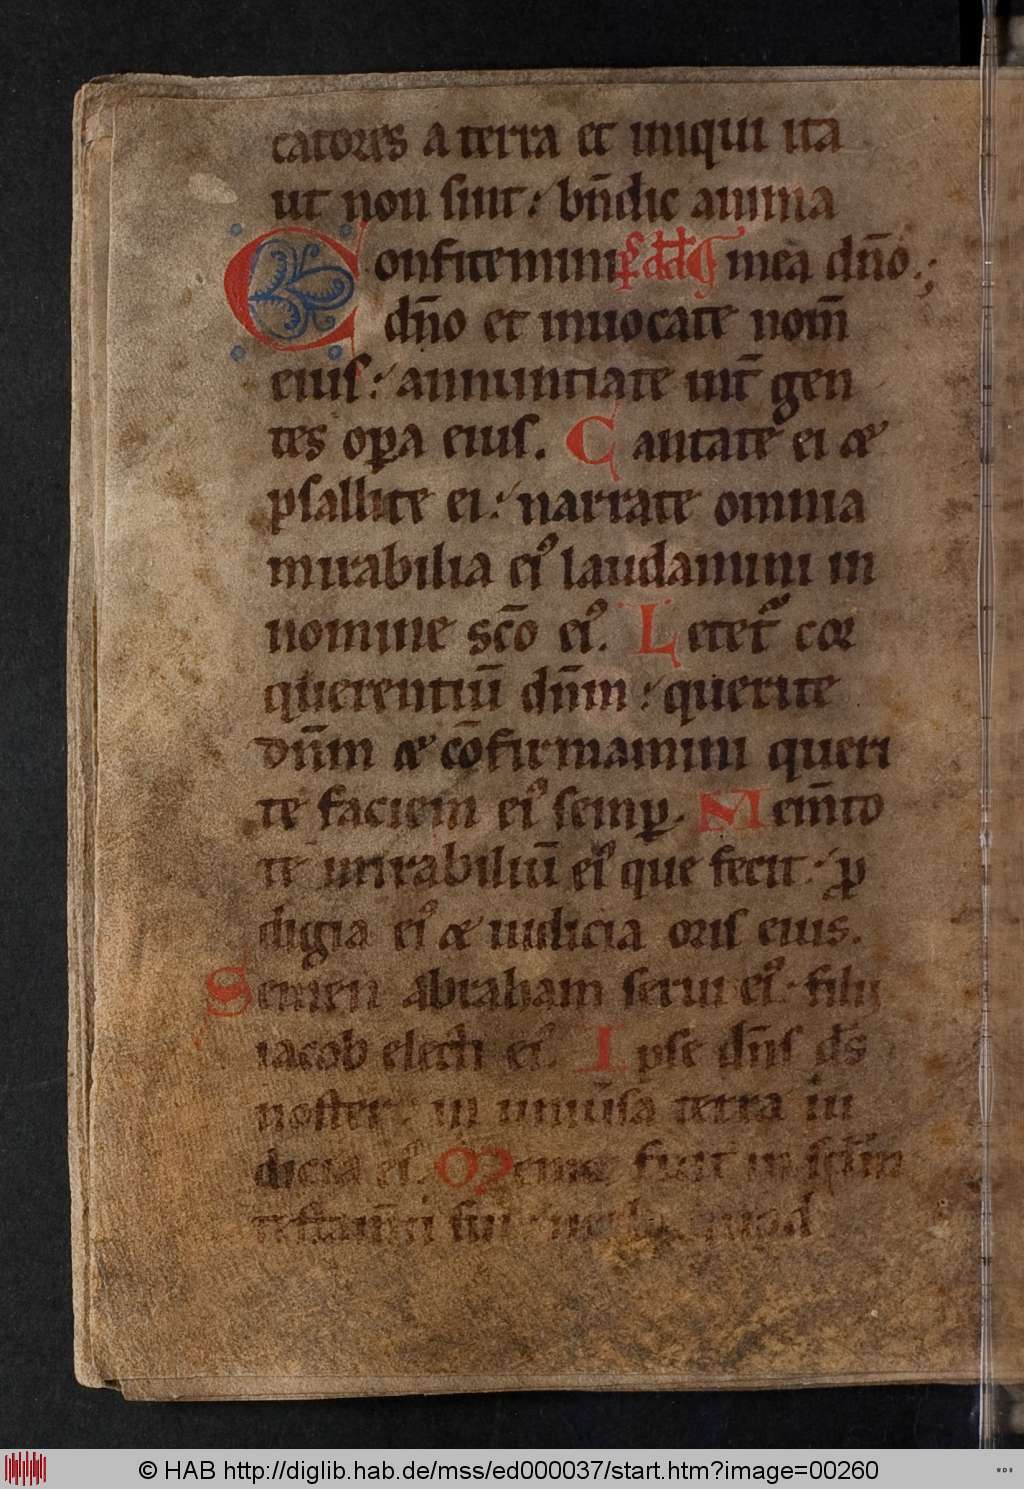 catores a terra et iniqui ita
ut non sint: bn̄dic anima
Confitemini ps̄ dd̄ mea dn̄o.;
dn̄o et inuocate nom̄
eius: annuntiate int̄ gen
tes oꝑa eius. Cantate ei æ
psallite ei: narrate omnia
mirabilia ei᷒ laudamini in
nomine sc̄o ei᷒. Letet᷑ cor
querentiū dn̄m: querite
dn̄m æ cōfirmamini queri
te faciem ei᷒ semꝑ. Mem̄to
te mirabiliū ei᷒ que fecit: ꝓ
digia ei᷒ æ iudicia oris eius.
Semen abraham serui ei᷒: filij
iacob electi ei᷒. Ipse dn̄s ds̄
noster: in uniūsa terra iu
dicia ei᷒. Memor fuit in sc̄lm
testam̄ti sui: quod
© HAB http://diglib.hab.de/mss/ed000037/start.htm?image=00260